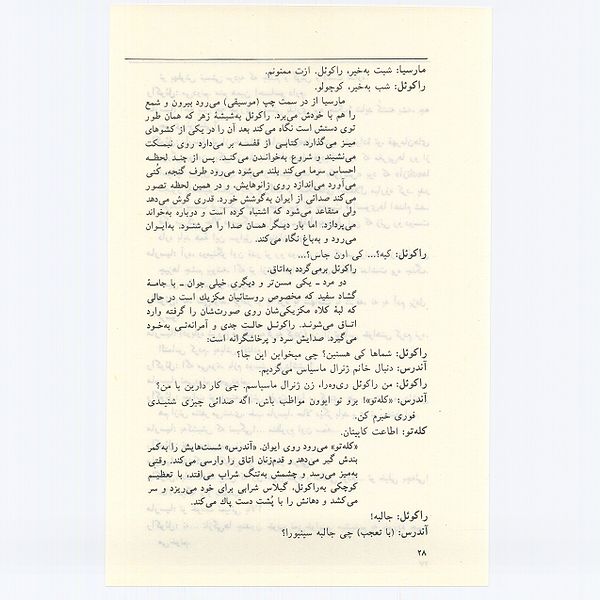 مارسیا: شبت به‌خیر، راکوئل. ازت ممنونم.
راکوئل: شب به‌خیر، کوچولو.
مارسیا از در سمت چپ (موسیقی) می‌رود بیرون و شمع
را هم با خودش می‌برد. راکوئل به‌شیشهٔ زهر که همان طور
توی دستش است نگاه می‌کند بعد آن را در یکی از کشوهای
میز می‌گذارد. کتابی از قفسه بر می‌دارد روی نیمکت
می‌نشیند و شروع به‌خواندن می‌کند. پس از چند لحظه
احساس سرما می‌کند بلند می‌شود می‌رود طرف گنجه، کُتی
می‌آورد می‌اندازد روی زانوهایش، و در همین لحظه تصور
می‌کند صدائی از ایوان به‌گوشش خورد. قدری گوش می‌دهد
ولی متقاعد می‌شود که اشتباه کرده است و دوباره به‌خواند
می‌پردازد. اما بار دیگر همان صدا را می‌شنود. به‌ایوان
می‌رود و به‌باغ نگاه می‌کند.
راکوئل: کیه؟... کی اون جاس؟...
راکوئل برمی‌گردد به‌اتاق.
دو مرد ـ یکی مسن‌تر و دیگری خیلی جوان ـ با جامهٔ
گشاد سفید که مخصوص روستائیان مکزیك است در حالی
که لبهٔ کلاه مکزیکی‌شان روی صورت‌شان را گرفته وارد
اتاق می‌شوند. راکوئل حالت جدی و آمرانه‌ئی به‌خود
می‌گیرد. صدایش سرد و پرخاشگرانه است:
راکوئل: شماها کی هستین؟ چی میخواین این جا؟
آندرس: دنبال خانم ژنرال ماسیاس می‌گردیم.
راکوئل: من راکوئل ری‌وه‌را، زن ژنرال ماسیاسم. چی کار دارین با من؟
آندرس: «کله‌تو»! برو تو ایوون مواظب باش. اگه صدائی چیزی شنیدی
فوری خبرم کن.
کله‌تو: اطاعت کاپیتان.
«کله‌تو» می‌رود روی ایوان. «آندرس» شست‌هایش را به‌کمر
بندش گیر می‌دهد و قدم‌زنان اتاق را وارسی می‌کند. وقتی
به‌میز می‌رسد و چشمش به‌تنگ شراب می‌افتد، با تعظیم
کوچکی به‌راکوئل، گیلاس شرابی برای خود می‌ریزد و سر
می‌کشد و دهانش را با پُشت دست پاك می‌کند.
راکوئل: جالبه!
آندرس: (با تعجب) چی جالبه سینیورا؟
۲۸